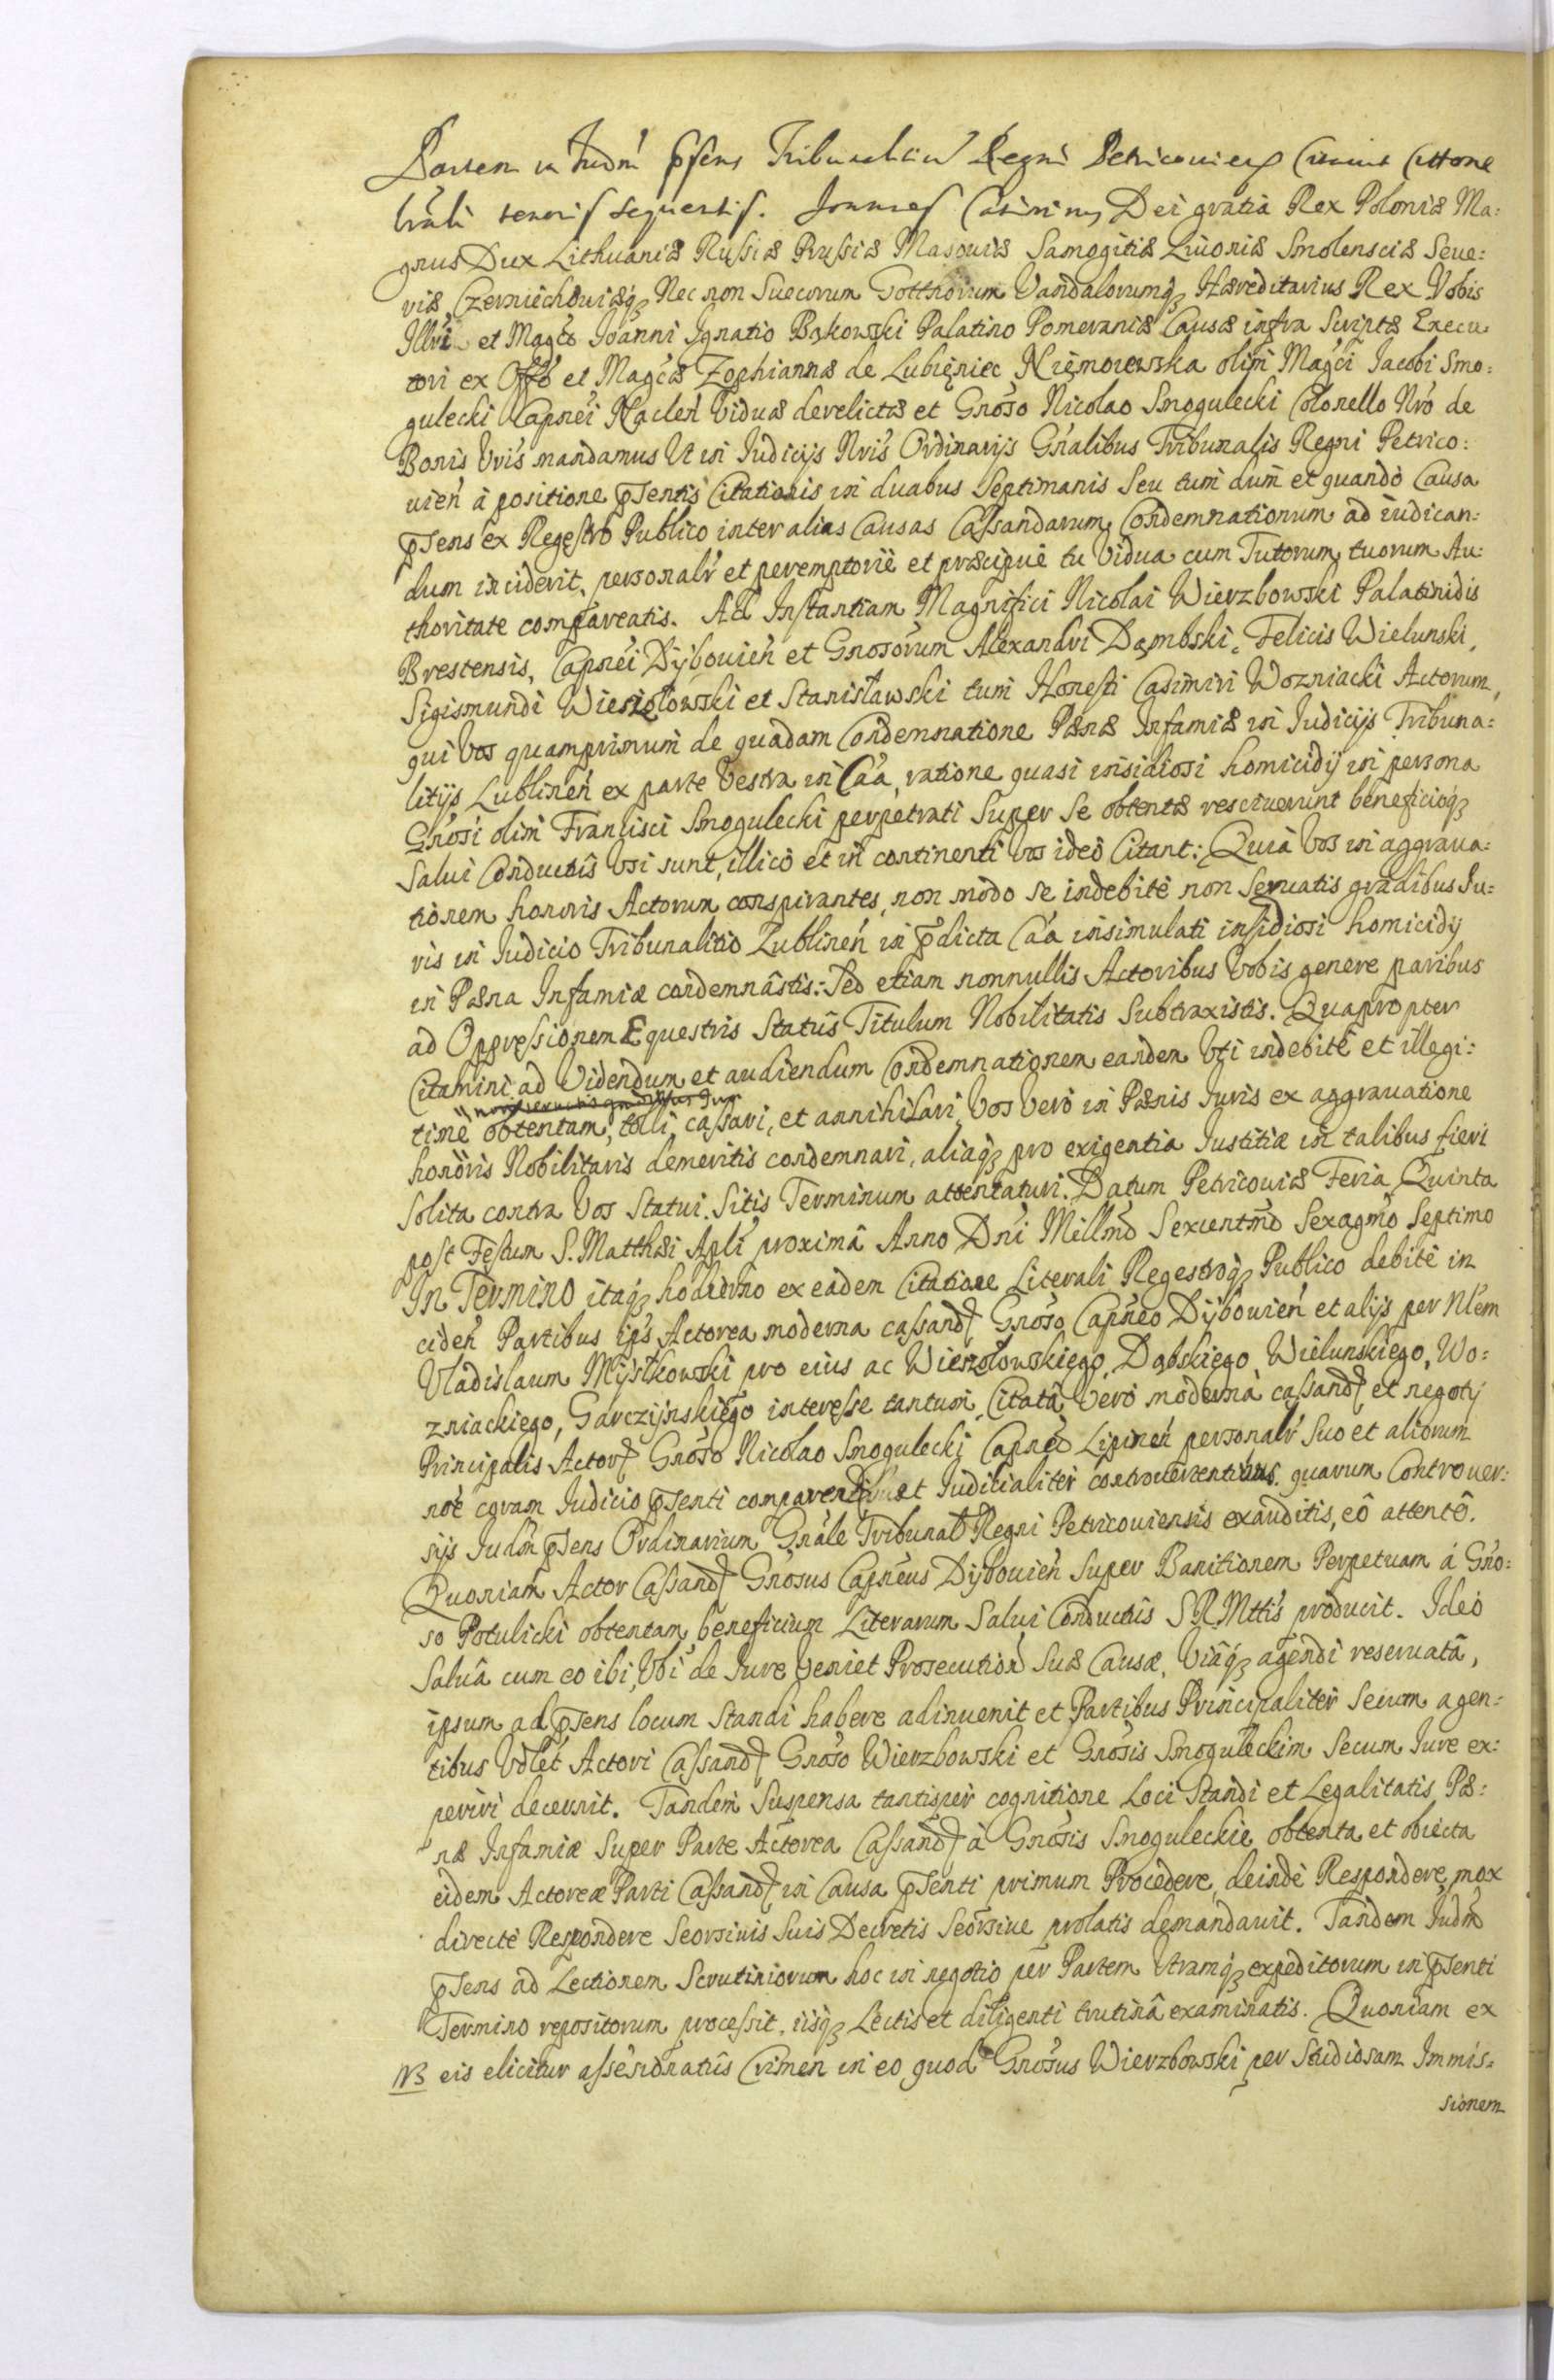 Partem in Judm̃ p̃sens Tribunalitiũ Regni Petricouien Citauit Cittone
lrali tenoris sequentis. Joannes Casimirus Dei gratia Rex Poloniæ Ma:
gnus Dux Lithuaniæ Russiæ Prussiæ Masouiæ Samogitiæ Liuoniæ Smolensciæ Seue:
riæ, Czerniechouiæq3 Nec non Suecorum Gotthorum Vandalorumq3 Hæreditarius Rex Vobis
Illri et Magco Joanni Ignatio Bąkowski Palatino Pomeraniæ Causæ infra Scriptæ Execu
tori ex Offo et Magcæ Zophiannæ de Lubięniec Nięmoiewska olim Magci Iacobi Smo:
gulecki Capnei Naclen Viduæ derelictæ et Gnoso Nicolao Smogulecki Colonello Nro de
Bonis Vris mandamus Ut in Iudicijs Nris Ordinarijs Gnalibus Tribunalis Regni Petrico:
uien à positione p̃sentis Citationis in duabus Septimanis Seu tum dum et quando Causa
p̃sens ex Regestro Publico inter alias Causas Cassandarum Condemnationum ad iudican:
dum inciderit, personalr et peremptoriè et præcipuè tu Vidua cum Tutorum tuorum Au:
thoritate compareatis. Ad Instantiam Magnifici Nicolai Wierzbowski Palatinidis
Brestensis, Capnei Dÿbouien et Gnosorum Alexandri Dąmbski, Felicis Wielunski,
Sigismundi Wieszołowski et Stanisławski tum Honesti Casimiri Wozniacki Actorum,
qui Vos quamprimum de quadam Condemnatione Pænæ Infamiæ in Iudicijs Tribuna:
litijs Lublinen ex parte Vestra in Caa, ratione quasi insidiosi homicidij in persona
Gnosi olim Francisci Smogulecki perpetrati Super Se obtentæ resciuerunt beneficioq3
Salui Conductûs Vsi sunt, illicò et in continenti Vos ideò Citant: Quia Vos in aggraua:
tionem honoris Actorum conspirantes, non modo se indebitè non Seruatis gradibus Iu:
ris in Iudicio Tribunalitio Lublinen in p̃dicta Caa insimulati insidiosi homicidij
in Pæna Infamiæ condemnâstis: Sed etiam nonnullis Actoribus Vobis genere paribus
ad Oppressionem Equestris Statûs Titulum Nobilitatis Subtraxistis. Quapropter
Citamini ad Videndum et audiendum Condemnationem eandem Vti indebitè et illegi:
non seruatis gradibus Iur
timè obtentam, tolli, cassari, et annihilari, Vos Verò in Pænis Iuris ex aggrauatione
honoris Nobilitaris demeritis condemnari, aliaq3 pro exigentia Iustitiæ in talibus fieri
Solita contra Vos Statui. Sitis Terminum attentaturi. Datum Petricouiæ Feria Quinta
post Festum S. Matthæi Apli proximâ Anno Dni Millmo Sexcentmo Sexagmo Septimo
In Termino itaq3 hodierno ex eadem Citatione Literali Regestroq3 Publico debitè in
ciden Partibus ipis Actorea moderna cassand Gnoso Capneo Dÿbouien et alijs per Nlem
Vladislaum Mÿsłkowski pro eius ac Wieszołowskiego, Dąbskiego, Wielunskiego, Wo:
zniackiego, Garczÿnskiego interesse tantum, Citatâ Verò modernâ cassand et negotij
Principalis Actor Gnoso Nicolao Smogulecki Capneo Lipinen personalr Suo et aliorum
noe coram Iudicio p̃senti comparentibus et Iudicialiter controuertentibus, quarum Controuer:
sijs Iudm p̃sens Ordinarium Gnale Tribunal Regni Petricouiensis exauditis, eô attentô.
Quoniam Actor Cassand Gnosus Capneus Dÿbouien Super Banitionem Perpetuam à Gno:
so Potulicki obtentam beneficium Literarum Salui Conductûs S R Mttis producit. Ideò
Saluâ cum eo ibi, Vbi de Iure Veniet Prosecution Suæ Causæ, Viâq3 agendi reseruatâ,
ipsum ad p̃sens locum Standi habere adinuenit et Partibus Principaliter Secum agen:
tibus Vdlet Actori Cassand Gnoso Wierzbowski et Gnosis Smoguleckim Secum Iure ex:
periri decernit. Tandem Suspensa tantisper cognitione Loci Standi et Legalitatis, Pæ:
næ Infamiæ Super Parte Actorea Cassand à Gnosis Smoguleckie obtenta et obiecta
eidem Actoreæ Parti Cassand in Causa p̃senti primum Procedere, deinde Respondere, mox
directè Respondere Seorsiuis Suis Decretis Seorsiue prolatis demandauit. Tandem Iudm
p̃sens ad Lectionem Scrutiniorum hoc in negotio per Partem Vtramq3 expeditorum in p̃senti
Termino repositorum processit, iisq3 Lectis et diligenti trutinâ examinatis. Quoniam ex
NB eis elicitur assesionatûs Crimen in eo, quod Gnosus Wierzbowski per Studiosam Immis:
sionem